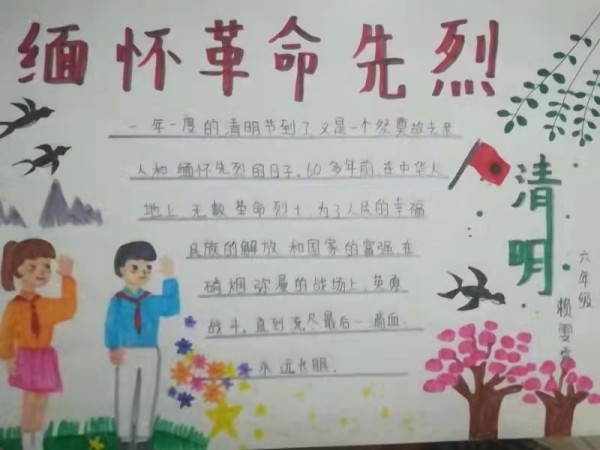 缅怀革命先烈
一年一度的清明节到了,又是一个祭奠故去亲
人和缅怀先烈的日子,60多年前,在中华大
地上,无数革命烈士,为了人民的幸福
民族的解放和国家的富强,在
硝烟弥漫的战场上,英勇
战斗,直到流尽最后一滴血
永远长眠.
清明
六年级
赖雯